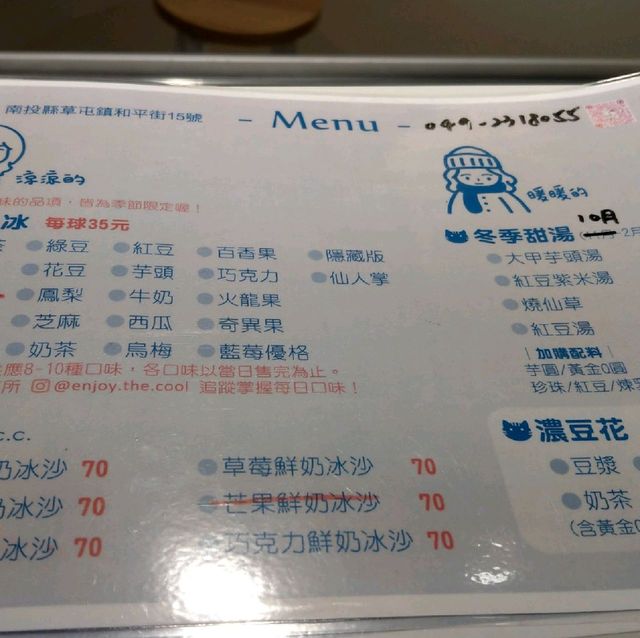 南投縣草屯鎮和平街15號
- Menu -
049-2318055
涼涼的
味的品項，皆為季節限定喔！
冰 每球35元
綠豆 紅豆 百香果 隱藏版
花豆 芋頭 巧克力 仙人掌
鳳梨 牛奶 火龍果
芝麻 西瓜 奇異果
奶茶 烏梅 藍莓優格
應8-10種口味，各口味以當日售完為止。
所 @enjoy.the.cool 追蹤掌握每日口味！
c.c.
奶冰沙 70 草莓鮮奶冰沙 70
冰沙 70 芒果鮮奶冰沙 70
冰沙 70 巧克力鮮奶冰沙 70
暖暖的
10月
冬季甜湯 -2月
大甲芋頭湯
紅豆紫米湯
燒仙草
紅豆湯
| 加購配料 |
芋圓/黃金Q圓
珍珠/紅豆/煉
濃豆花
豆漿
奶茶
(含黃金